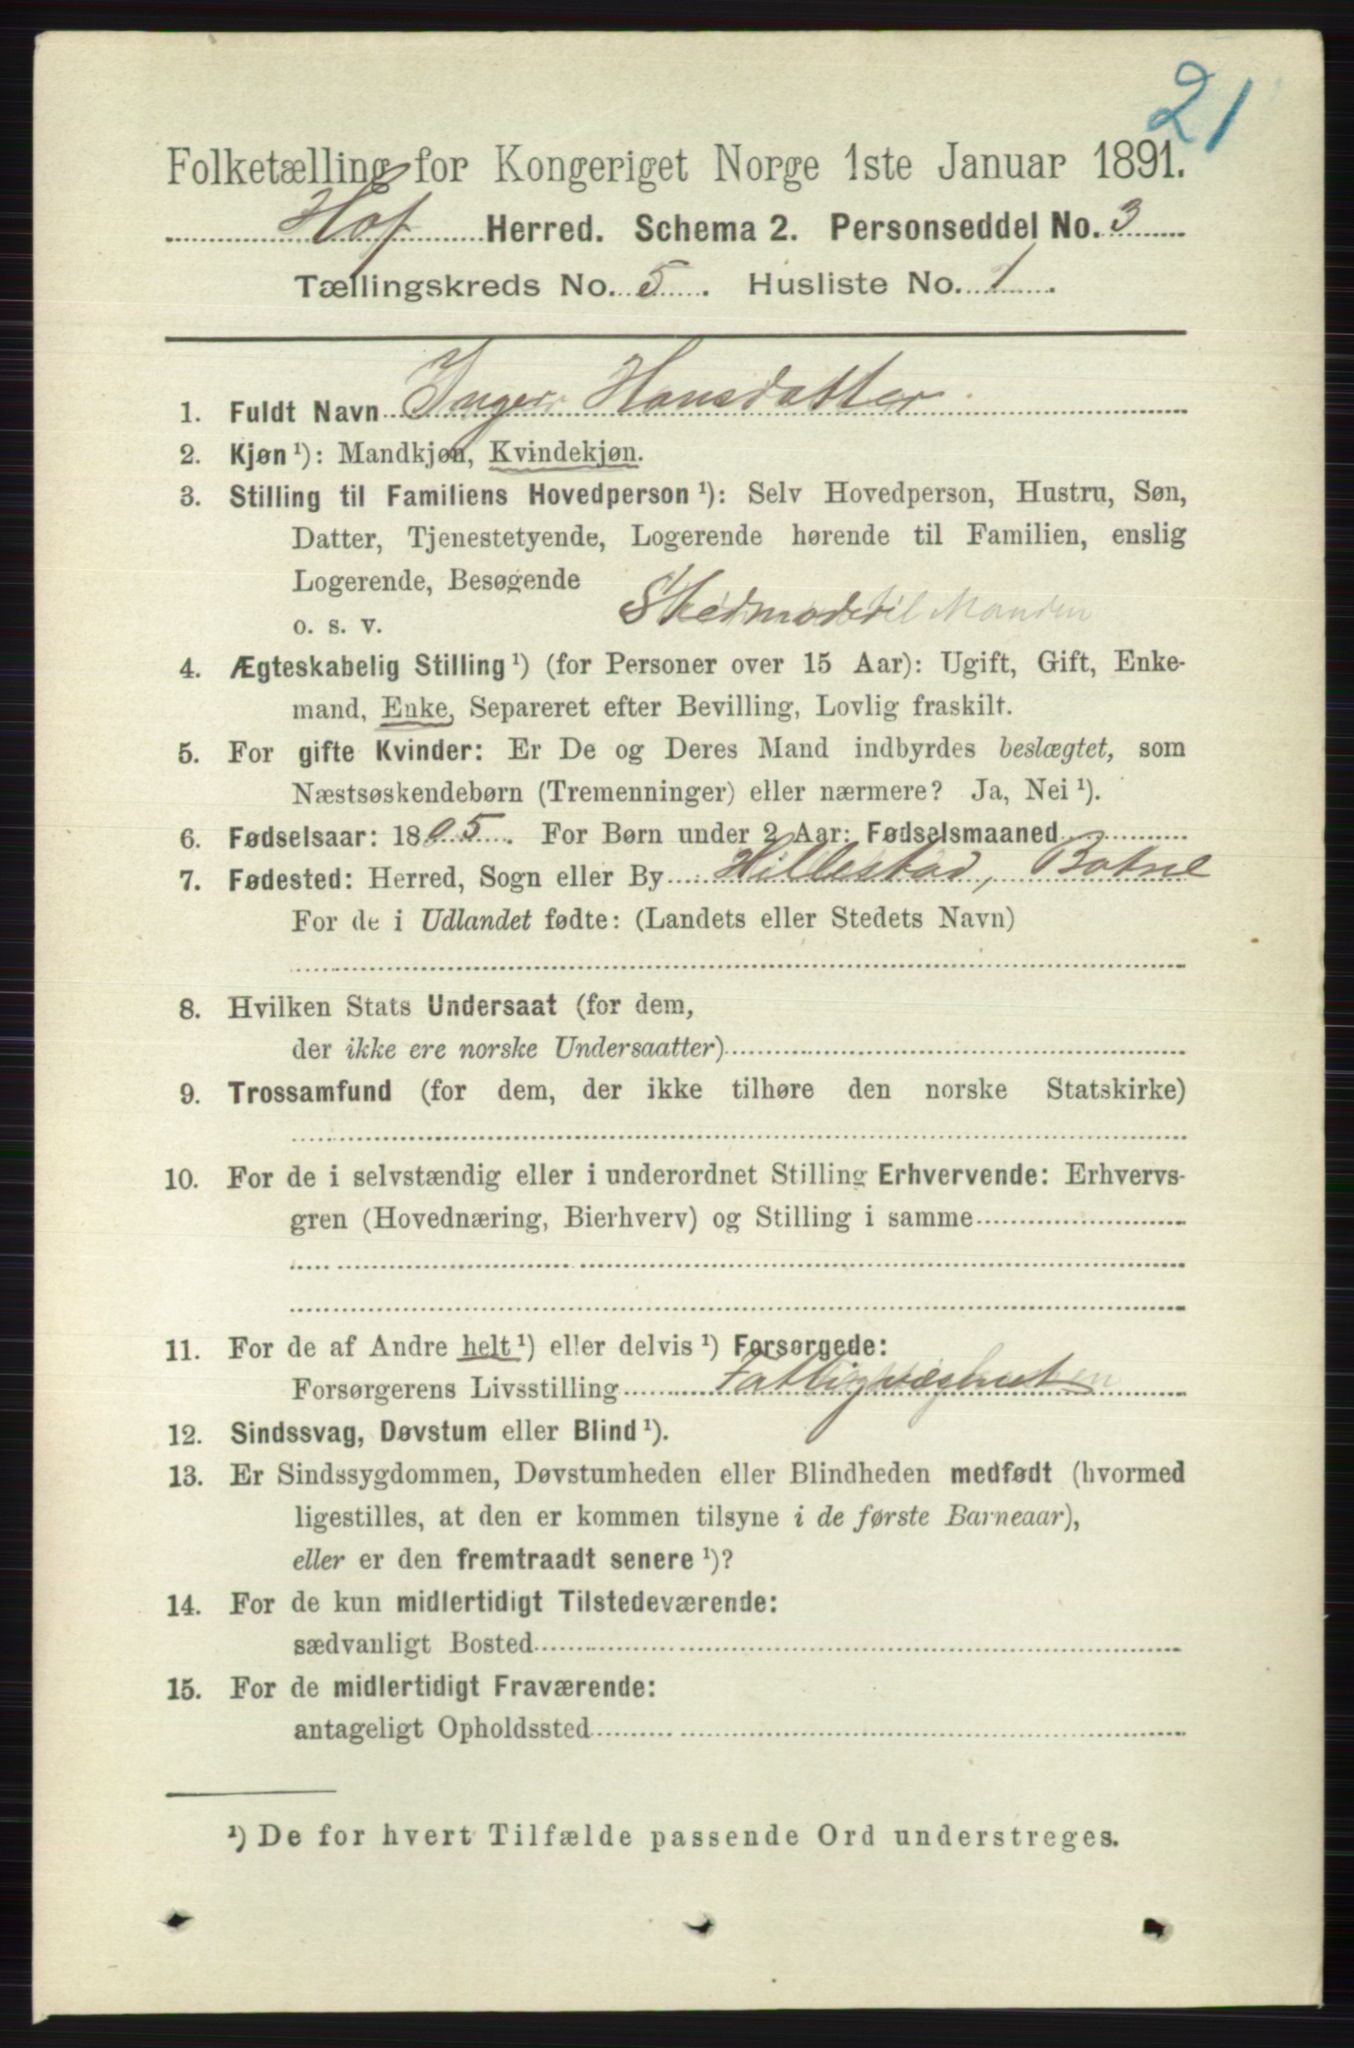 21
Folketælling for Kongeriget Norge 1ste Januar 1891.
Hof Herred. Schema 2. Personseddel No. 3
Tællingskreds No. 5. Husliste No. 1.
1. Fuldt Navn Inger Hansdatter
2. Kjøn ¹): Mandkjøn, Kvindekjøn.
3. Stilling til Familiens Hovedperson ¹): Selv Hovedperson, Hustru, Søn,
Datter, Tjenestetyende, Logerende hørende til Familien, enslig
Logerende, Besøgende
o. s. v. Stedmoder til Manden
4. Ægteskabelig Stilling ¹) (for Personer over 15 Aar): Ugift, Gift, Enke-
mand, Enke, Separeret efter Bevilling, Lovlig fraskilt.
5. For gifte Kvinder: Er De og Deres Mand indbyrdes beslægtet, som
Næstsøskendebørn (Tremenninger) eller nærmere? Ja, Nei ¹).
6. Fødselsaar: 1805. For Børn under 2 Aar: Fødselsmaaned
7. Fødested: Herred, Sogn eller By Hillestad, Botne
For de i Udlandet fødte: (Landets eller Stedets Navn)
8. Hvilken Stats Undersaat (for dem,
der ikke ere norske Undersaatter)
9. Trossamfund (for dem, der ikke tilhøre den norske Statskirke)
10. For de i selvstændig eller i underordnet Stilling Erhvervende: Erhvervs-
gren (Hovednæring, Bierhverv) og Stilling i samme
11. For de af Andre helt ¹) eller delvis ¹) Forsørgede:
Forsørgerens Livsstilling
12. Sindssvag, Døvstum eller Blind ¹).
13. Er Sindssygdommen, Døvstumheden eller Blindheden medfødt (hvormed
ligestilles, at den er kommen tilsyne i de første Barneaar),
eller er den fremtraadt senere ¹)?
14. For de kun midlertidigt Tilstedeværende:
sædvanligt Bosted
15. For de midlertidigt Fraværende:
antageligt Opholdssted
¹) De for hvert Tilfælde passende Ord understreges.